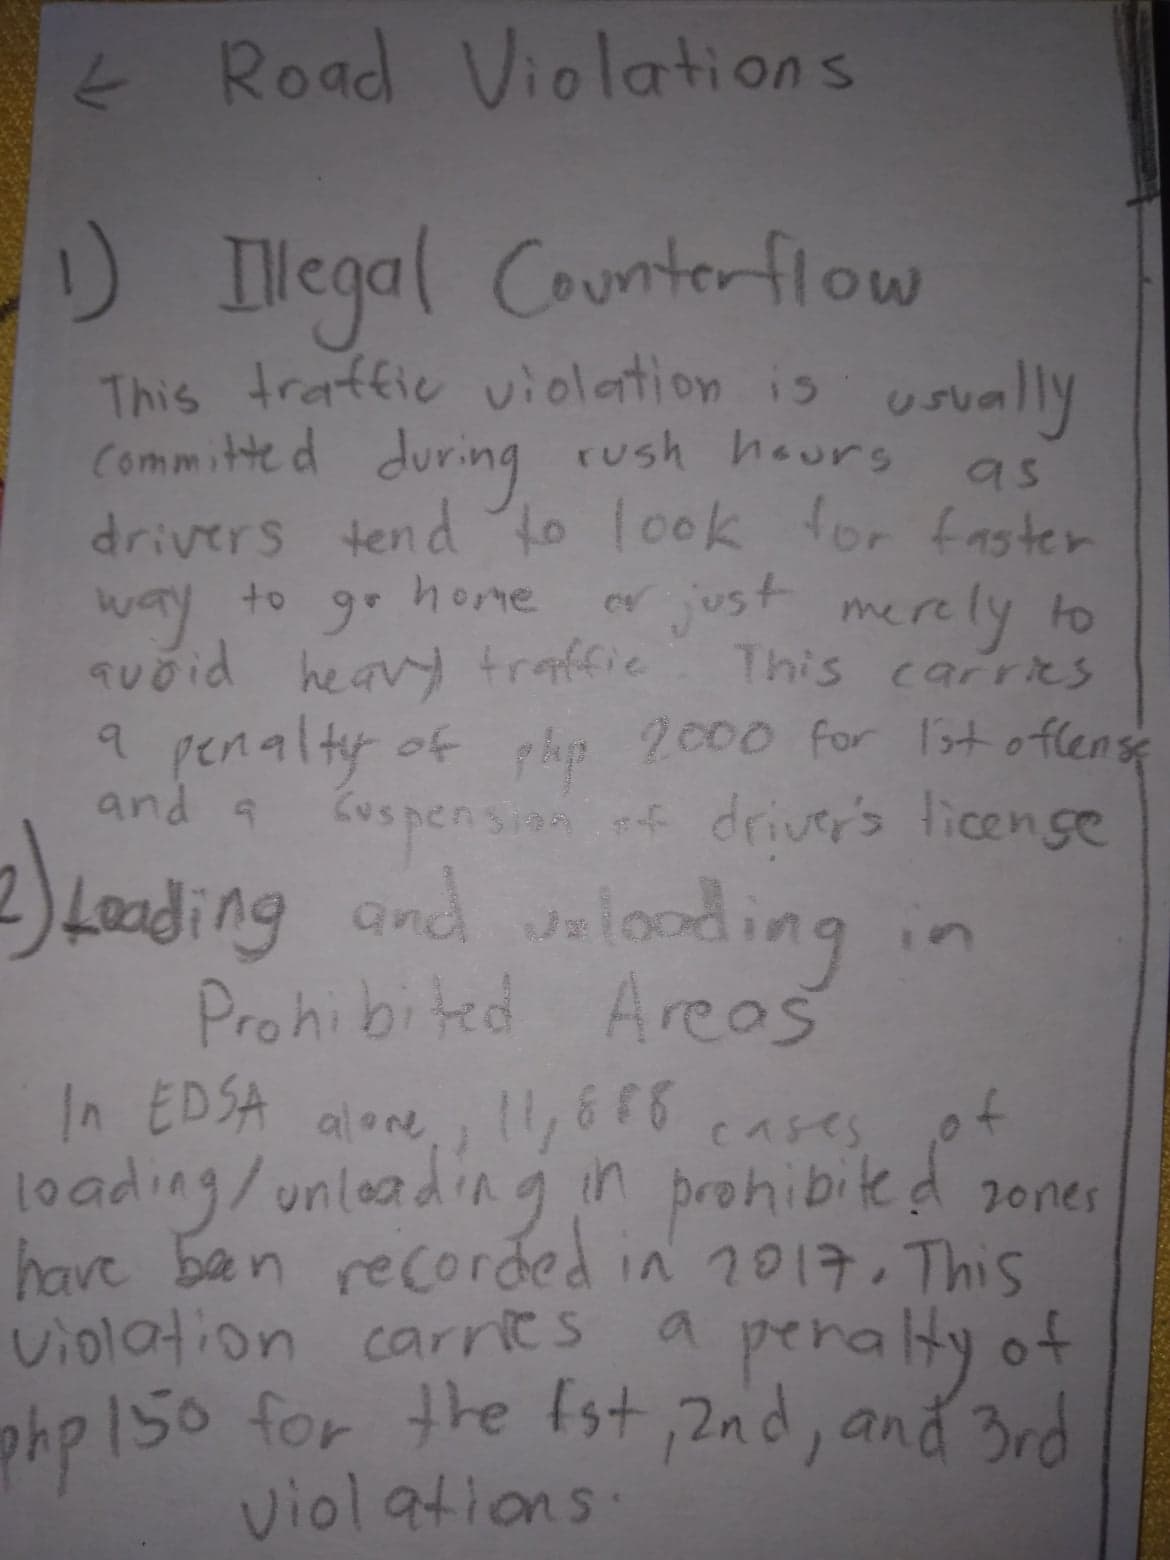 ← Road Violations
1) Illegal Counterflow
This traffic violation is usually
committed during rush hours as
drivers tend to look for faster
way to go home or just merely to
avoid heavy traffic. This carries
a penalty of php 2000 for 1st offense
and a suspension of driver's license
2) Loading and unloading in
Prohibited Areas
In EDSA alone, 11,688 cases of
loading/unloading in prohibited zones
have been recorded in 2017. This
violation carries a penalty of
php 150 for the 1st, 2nd, and 3rd
violations.